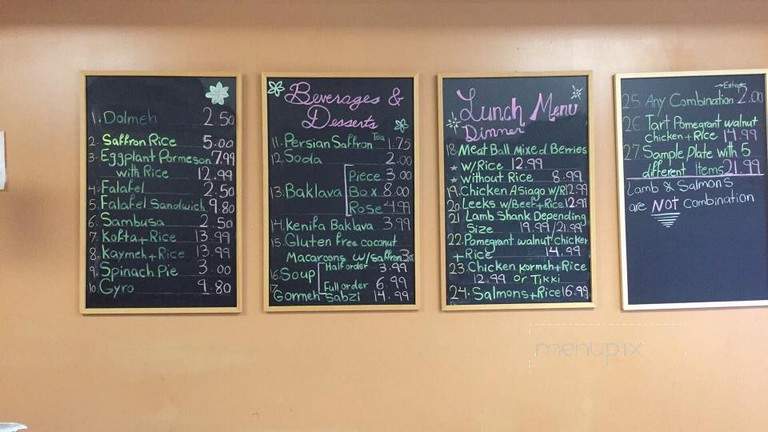 1. Dolmeh 2.50
2. Saffron Rice 5.00
3. Eggplant Parmeson 7.99
with Rice 12.99
4. Falafel 2.50
5. Falafel Sandwich 9.80
6. Sambusa 2.50
7. Kofta + Rice 13.99
8. Kaymeh + Rice 13.99
9. Spinach Pie 3.00
10. Gyro 9.80
Beverages &
Desserts
11. Persian Saffron Tea 1.75
12. Soda 2.00
13. Baklava
Piece 3.00
Box 8.00
Rose 4.99
14. Kenifa Baklava 3.99
15. Gluten free coconut
Macaroons w/saffron 3
16. Soup
Half order 3.99
Full order 6.99
17. Gormeh Sabzi 14.99
Lunch Menu
Dinner
18. Meat Ball Mixed Berries
w/Rice 12.99
without Rice 8.99
19. Chicken Asiago w/R 12.99
20. Leeks w/Beef + Rice 12.99
21. Lamb Shank Depending
Size 19.99/21.99
22. Pomegrant walnut chicken
+ Rice 14.99
23. Chicken Kormeh + Rice
12.99 or Tikki
24. Salmons + Rice 16.99
25. Any Combination 2.00
26. Tart Pomegrant walnut
chicken + Rice 14.99
27. Sample Plate with 5
different Items 21.99
Lamb & Salmons
are NOT combination
menupix